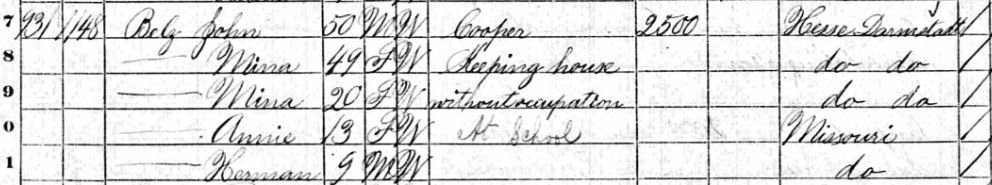 7 931 1148 Belz John 50 M W Cooper 2500 Hesse Darmstadt /
8 — Mina 49 F W Keeping house do do /
9 — Mina 20 F W without occupation do do /
0 — Annie 13 F W At School Missouri /
1 — Herman 9 M W do /